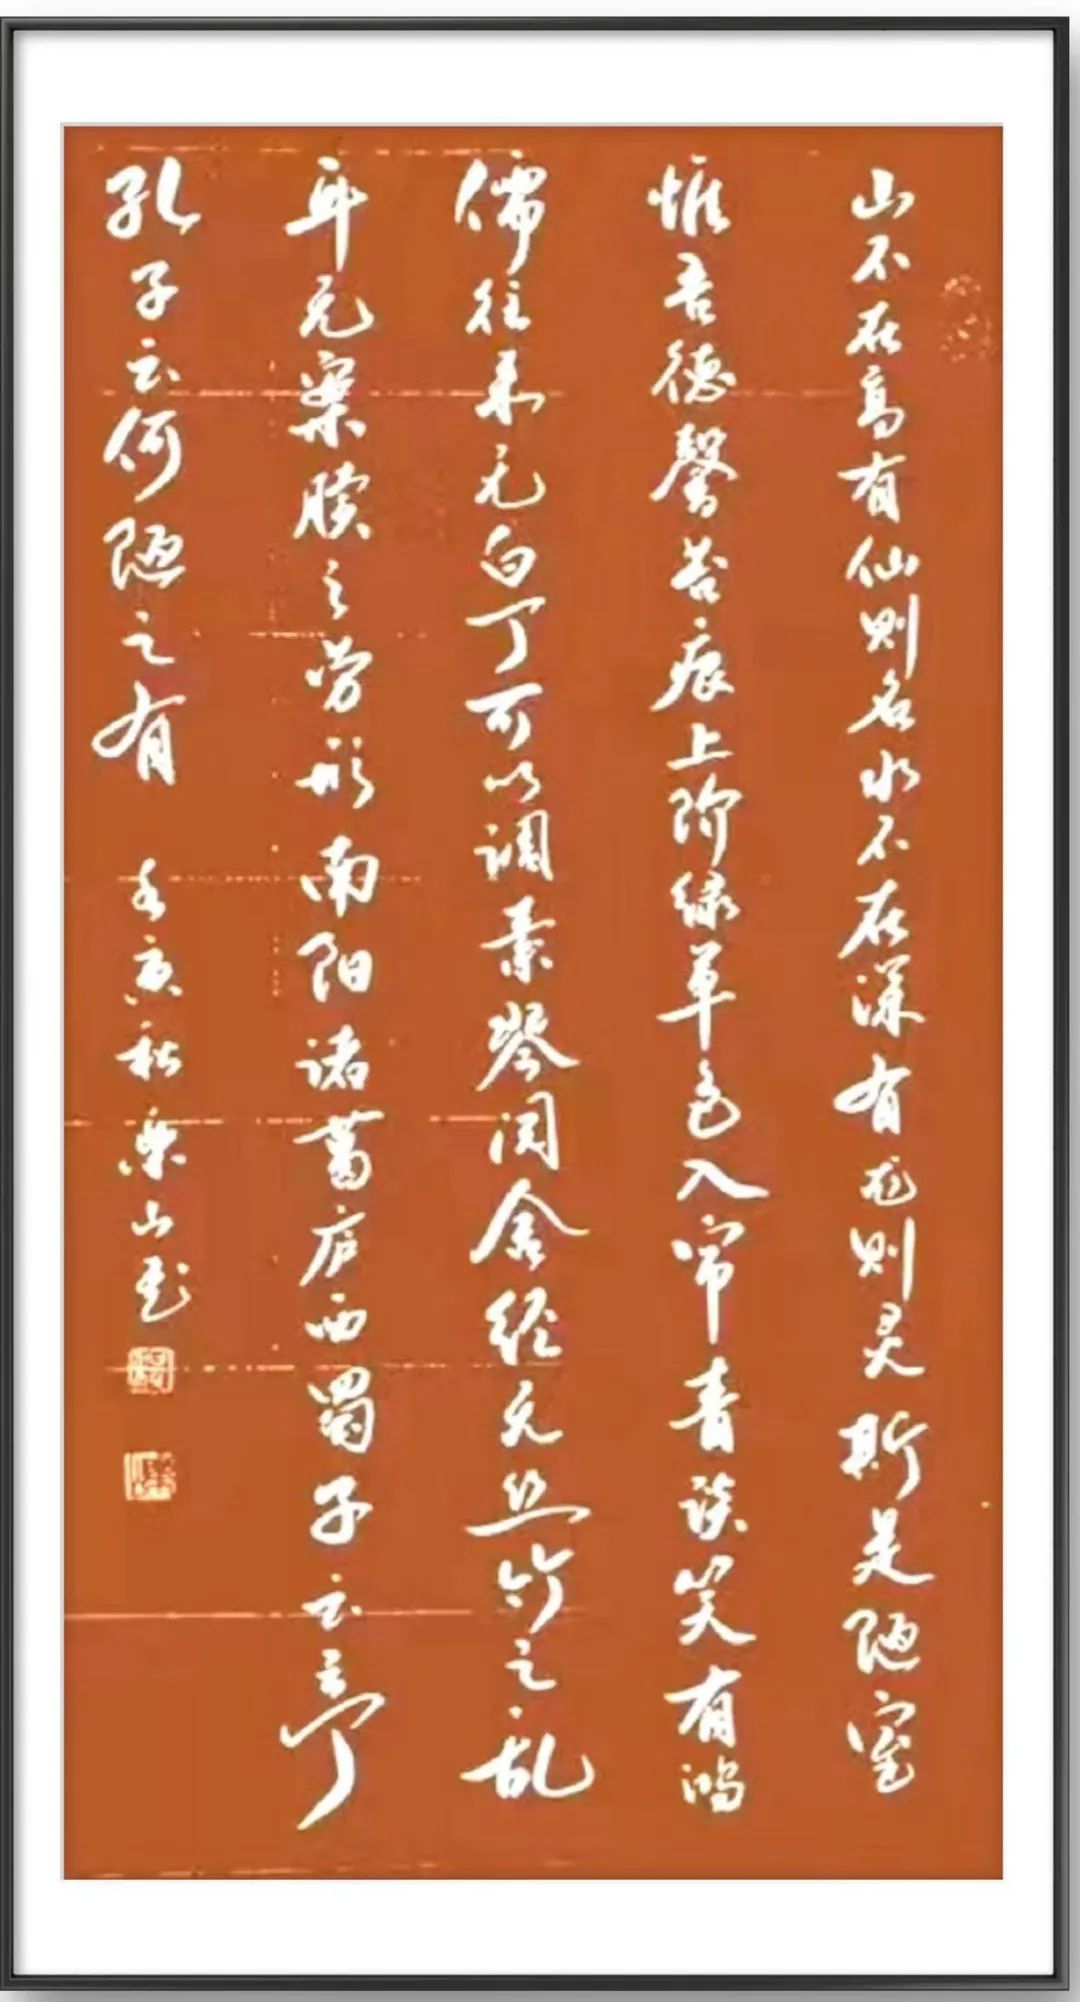 山不在高有仙则名水不在深有龙则灵斯是陋室
惟吾德馨苔痕上阶绿草色入帘青谈笑有鸿
儒往来无白丁可以调素琴阅金经无丝竹之乱
耳无案牍之劳形南阳诸葛庐西蜀子云亭
孔子云何陋之有 壬寅秋乐山